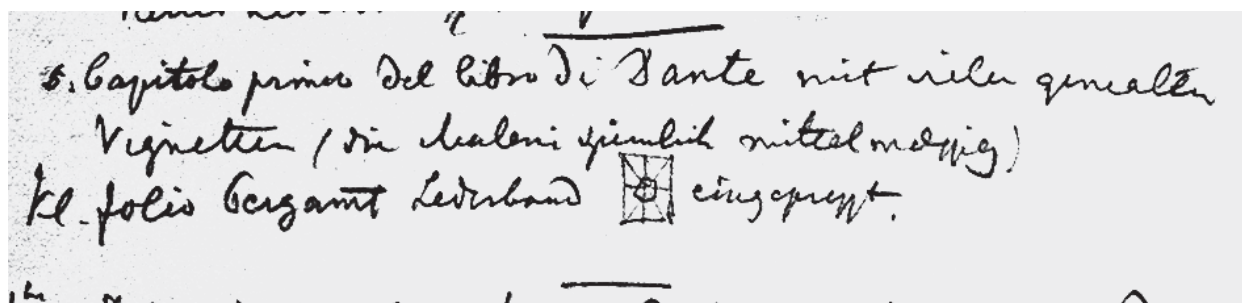 5. Capitolo primo del libro di Dante mit vielen gemalten
Vignetten (die Malerei ziemlich mittelmässig)
Kl. folio Lederband eingepresst.